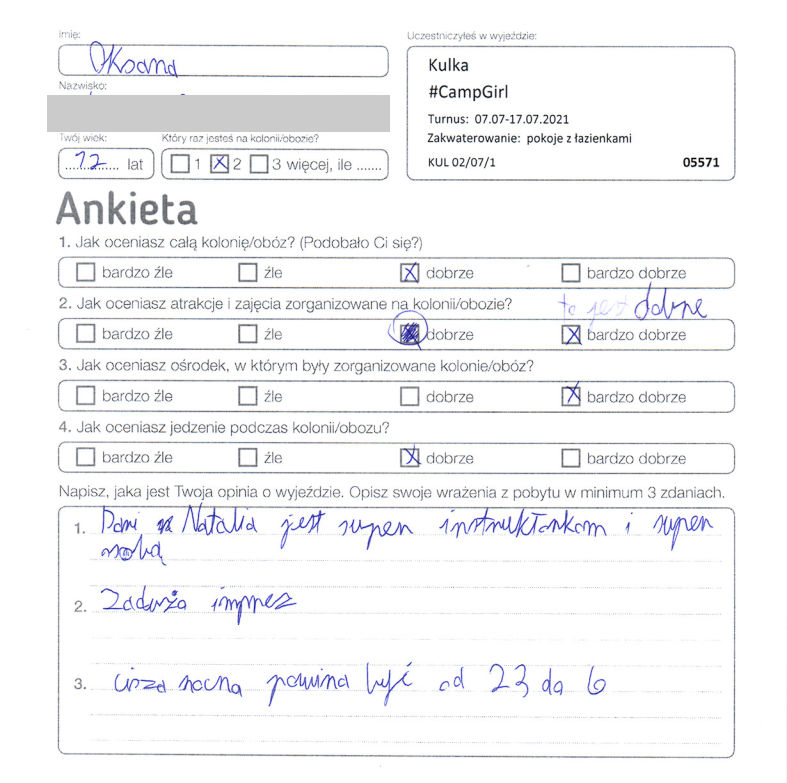 Imię:
Oksana
Uczestniczyłeś w wyjeździe:
Kulka
#CampGirl
Turnus: 07.07-17.07.2021
Zakwaterowanie: pokoje z łazienkami
KUL 02/07/1 05571
Nazwisko:
Twój wiek:
12 lat
Który raz jesteś na kolonii/obozie?
1 2 3 więcej, ile .......
Ankieta
1. Jak oceniasz całą kolonię/obóz? (Podobało Ci się?)
bardzo źle źle dobrze bardzo dobrze
2. Jak oceniasz atrakcje i zajęcia zorganizowane na kolonii/obozie?
to jest dobrze
bardzo źle źle dobrze bardzo dobrze
3. Jak oceniasz ośrodek, w którym były zorganizowane kolonie/obóz?
bardzo źle źle dobrze bardzo dobrze
4. Jak oceniasz jedzenie podczas kolonii/obozu?
bardzo źle źle dobrze bardzo dobrze
Napisz, jaka jest Twoja opinia o wyjeździe. Opisz swoje wrażenia z pobytu w minimum 3 zdaniach.
1. Pani Natalia jest super instruktorkom i super
osobą
2. Zadurża imprez
3. cisza nocna powina być od 23 do 6